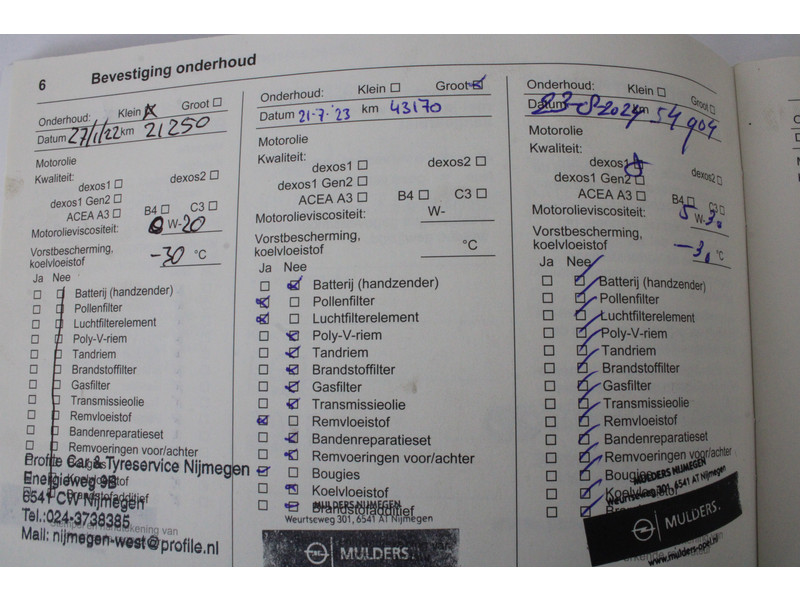 6
Bevestiging onderhoud
Onderhoud: Klein Groot
Datum 27/1/22 km 21250
Motorolie
Kwaliteit:
dexos1 dexos2
dexos1 Gen2
ACEA A3 B4 C3
Motorolieviscositeit: 0 W-20
Vorstbescherming,
koelvloeistof -30 °C
Ja Nee
Batterij (handzender)
Pollenfilter
Luchtfilterelement
Poly-V-riem
Tandriem
Brandstoffilter
Gasfilter
Transmissieolie
Remvloeistof
Bandenreparatieset
Remvoeringen voor/achter
Bougies
Koelvloeistof
Brandstofadditief
Profile Car & Tyreservice Nijmegen
Energieweg 9B
6541 CW Nijmegen
Tel.:024-3738385
Mail: nijmegen-west@profile.nl
Onderhoud: Klein Groot
Datum 21-7-'23 km 43170
Motorolie
Kwaliteit:
dexos1 dexos2
dexos1 Gen2
ACEA A3 B4 C3
Motorolieviscositeit: W-
Vorstbescherming,
koelvloeistof °C
Ja Nee
Batterij (handzender)
Pollenfilter
Luchtfilterelement
Poly-V-riem
Tandriem
Brandstoffilter
Gasfilter
Transmissieolie
Remvloeistof
Bandenreparatieset
Remvoeringen voor/achter
Bougies
Koelvloeistof
Brandstofadditief
MULDERS NIJMEGEN
Weurtseweg 301, 6541 AT Nijmegen
MULDERS.
Onderhoud: Klein Groot
Datum 23-8-2024 km 54904
Motorolie
Kwaliteit:
dexos1 dexos2
dexos1 Gen2
ACEA A3 B4 C3
Motorolieviscositeit: 5 W-30
Vorstbescherming,
koelvloeistof °C
Ja Nee
Batterij (handzender)
Pollenfilter
Luchtfilterelement
Poly-V-riem
Tandriem
Brandstoffilter
Gasfilter
Transmissieolie
Remvloeistof
Bandenreparatieset
Remvoeringen voor/achter
Bougies
Koelvloeistof
MULDERS NIJMEGEN
Weurtseweg 301, 6541 AT Nijmegen
MULDERS.
www.mulders-opel.nl